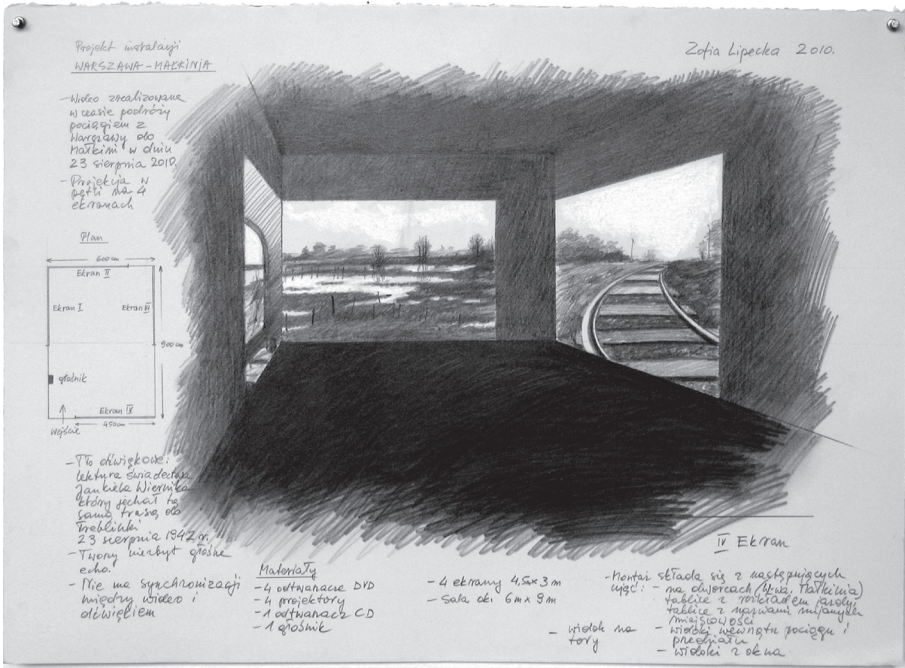 Projekt instalacji
WARSZAWA-MAŁKINIA
Zofia Lipecka 2010.
-Wideo zrealizowane
w czasie podróży
pociągiem z
Warszawy do
Małkini w dniu
23 sierpnia 2010.
-Projekcja w
pętli na 4
ekranach
Plan
600 cm
Ekran II
Ekran I
Ekran III
900 cm
głośnik
Ekran IV
450cm
wejście
-Tło dźwiękowe:
lektura świadectwa
Jankiela Wiernika
który jechał tą
samą trasą do
Treblinki
23 sierpnia 1942 r.
-Tworzy niezbyt głośne
echo.
-Nie ma synchronizacji
między wideo i
dźwiękiem
Materiały
-4 odtwarzacze DVD
-4 projektory
-1 odtwarzacz CD
-1 głośnik
-4 ekrany 4,5x3 m
-Sala ok. 6m x 9m
IV Ekran
-Montaż składa się z następujących
ujęć: -na dworcach (W-wa, Małkinia)
tablice z rozkładem jazdy,
tablice z nazwami mijanych
miejscowości
-widoki wewnątrz pociągu i
przedziału
-widoki z okna
-widok na
tory